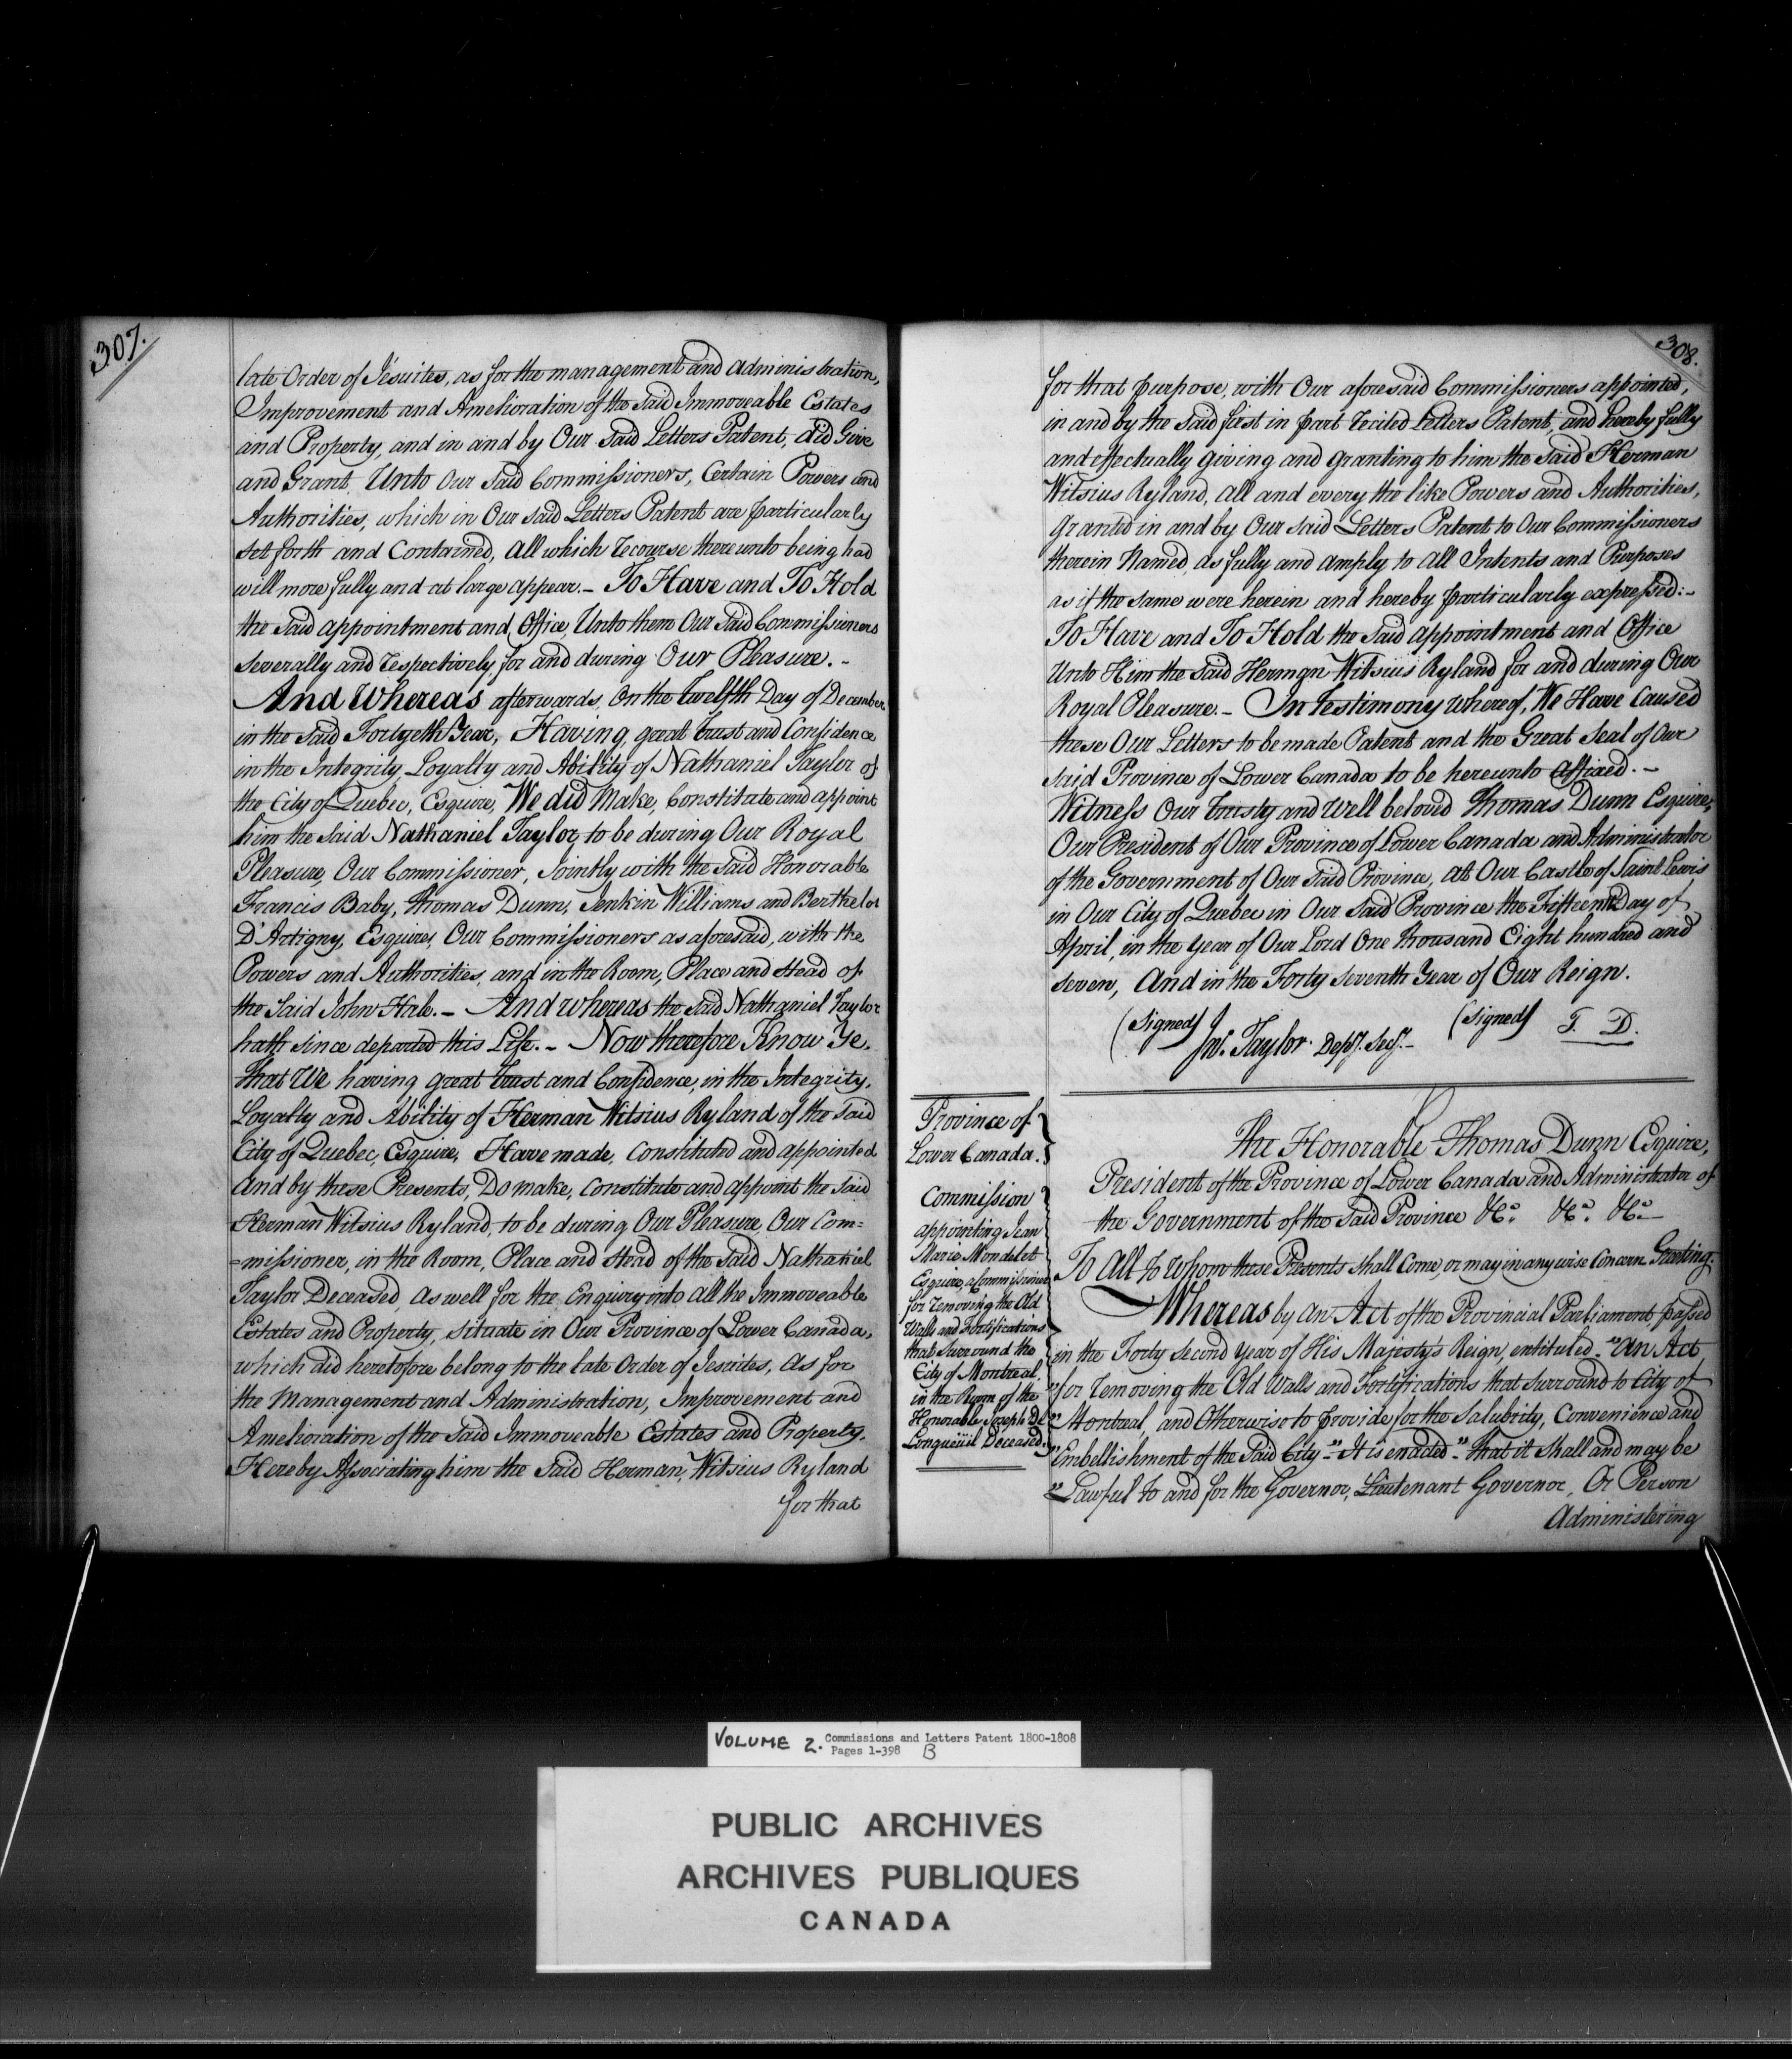 307.
late Order of Jesuites, as for the management and administration,
Improvement and Amelioration of the Said Immoveable Estates
and Property, and in and by Our Said Letters Patent, did Give
and Grant Unto Our Said Commissioners, Certain Powers and
Authorities, which in Our Said Letters Patent are particularly
Set forth and Contained, all which recourse thereunto being had
will more fully and at large appear. – To Have and To Hold
the Said appointment and Office, Unto them Our Said Commissioners
severally and respectively for and during Our Pleasure. –
And Whereas afterwards, On the Twelfth Day of December
in the Said Fortyeth Year, Having, great trust and Confidence
in the Integrity, Loyalty and Ability of Nathaniel Taylor of
the City of Quebec, Esquire, We did Make, Constitute and appoint
him the Said Nathaniel Taylor, to be during Our Royal
Pleasure, Our Commissioner, Jointly with the Said Honorable
Francis Baby, Thomas Dunn, Jenkin Williams and Berthelot
D'Artigny, Esquires, Our Commissioners as aforesaid, with the
Powers and Authorities, and in the Room, Place and Stead of
the Said John Hale. – And whereas the Said Nathaniel Taylor
hath since departed this Life. – Now therefore Know Ye,
that We having great trust and Confidence, in the Integrity,
Loyalty and Ability of Herman Witsius Ryland of the Said
City of Quebec, Esquire, Have made, Constituted and appointed
and by these Presents, Do make, Constitute and appoint the Said
Herman Witsius Ryland, to be during Our Pleasure, Our Com=
=missioner, in the Room, Place and Stead of the Said Nathaniel
Taylor Deceased, as well for the Enquiry into all the Immoveable
Estates and Property, situate in Our Province of Lower Canada,
which did heretofore belong to the late Order of Jesuites, as for
the Management and Administration, Improvement and
Amelioration of the Said Immoveable Estates and Property.
Hereby Associating him the Said Herman, Witsius Ryland
for that
308.
for that purpose, with Our aforesaid Commissioners appointed,
in and by the Said first in part recited Letters Patent, and hereby fully
and effectually giving and granting to him the Said Herman
Witsius Ryland, all and every the like Powers and Authorities,
Granted in and by Our Said Letters Patent to Our Commissioners
therein Named, as fully and amply to all Intents and Purposes
as if the same were herein and hereby particularly expressed: –
To Have and To Hold the Said appointment and Office
Unto Him the Said Herman Witsius Ryland for and during Our
Royal Pleasure. – In Testimony whereof, We Have Caused
these Our Letters to be made Patent and the Great Seal of Our
Said Province of Lower Canada to be hereunto affixed. –
Witness Our trusty and well beloved Thomas Dunn Esquire,
Our President of Our Province of Lower Canada and Administrator
of the Government of Our Said Province, at Our Castle of Saint Lewis
in Our City of Quebec in Our Said Province the Fifteenth Day of
April, in the Year of Our Lord One thousand Eight hundred and
seven, And in the Forty seventh Year of Our Reign.
(Signed) T. D.
(Signed) Jn. Taylor. Depy. Secy. –
Province of
Lower Canada. }
Commission
appointing Jean
Marie Mondelet
Esquire, a Commissioner
for removing the Old
Walls and Fortifications
that Surround the
City of Montreal,
in the Room of the
Honorable Joseph De
Longueüil Deceased.
The Honorable Thomas Dunn Esquire,
President of the Province of Lower Canada and Administrator of
the Government of the Said Province &c. &c. &c.
To All to Whom these Presents shall Come, or may in any wise Concern Greeting.
Whereas by an Act of the Provincial Parliament, passed
in the Forty Second Year of His Majesty's Reign, entituled. "An Act
"for removing the Old Walls and Fortifications that Surround to City of
" Montreal, and Otherwise to provide for the Salubrity, Convenience and
" Embellishment of the Said City" – It is enacted – " that it Shall and may be
" Lawful to and for the Governor, Lieutenant Governor, Or Person
Administering
VOLUME 2. Commissions and Letters Patent 1800-1808
Pages 1-398 B
PUBLIC ARCHIVES
ARCHIVES PUBLIQUES
CANADA